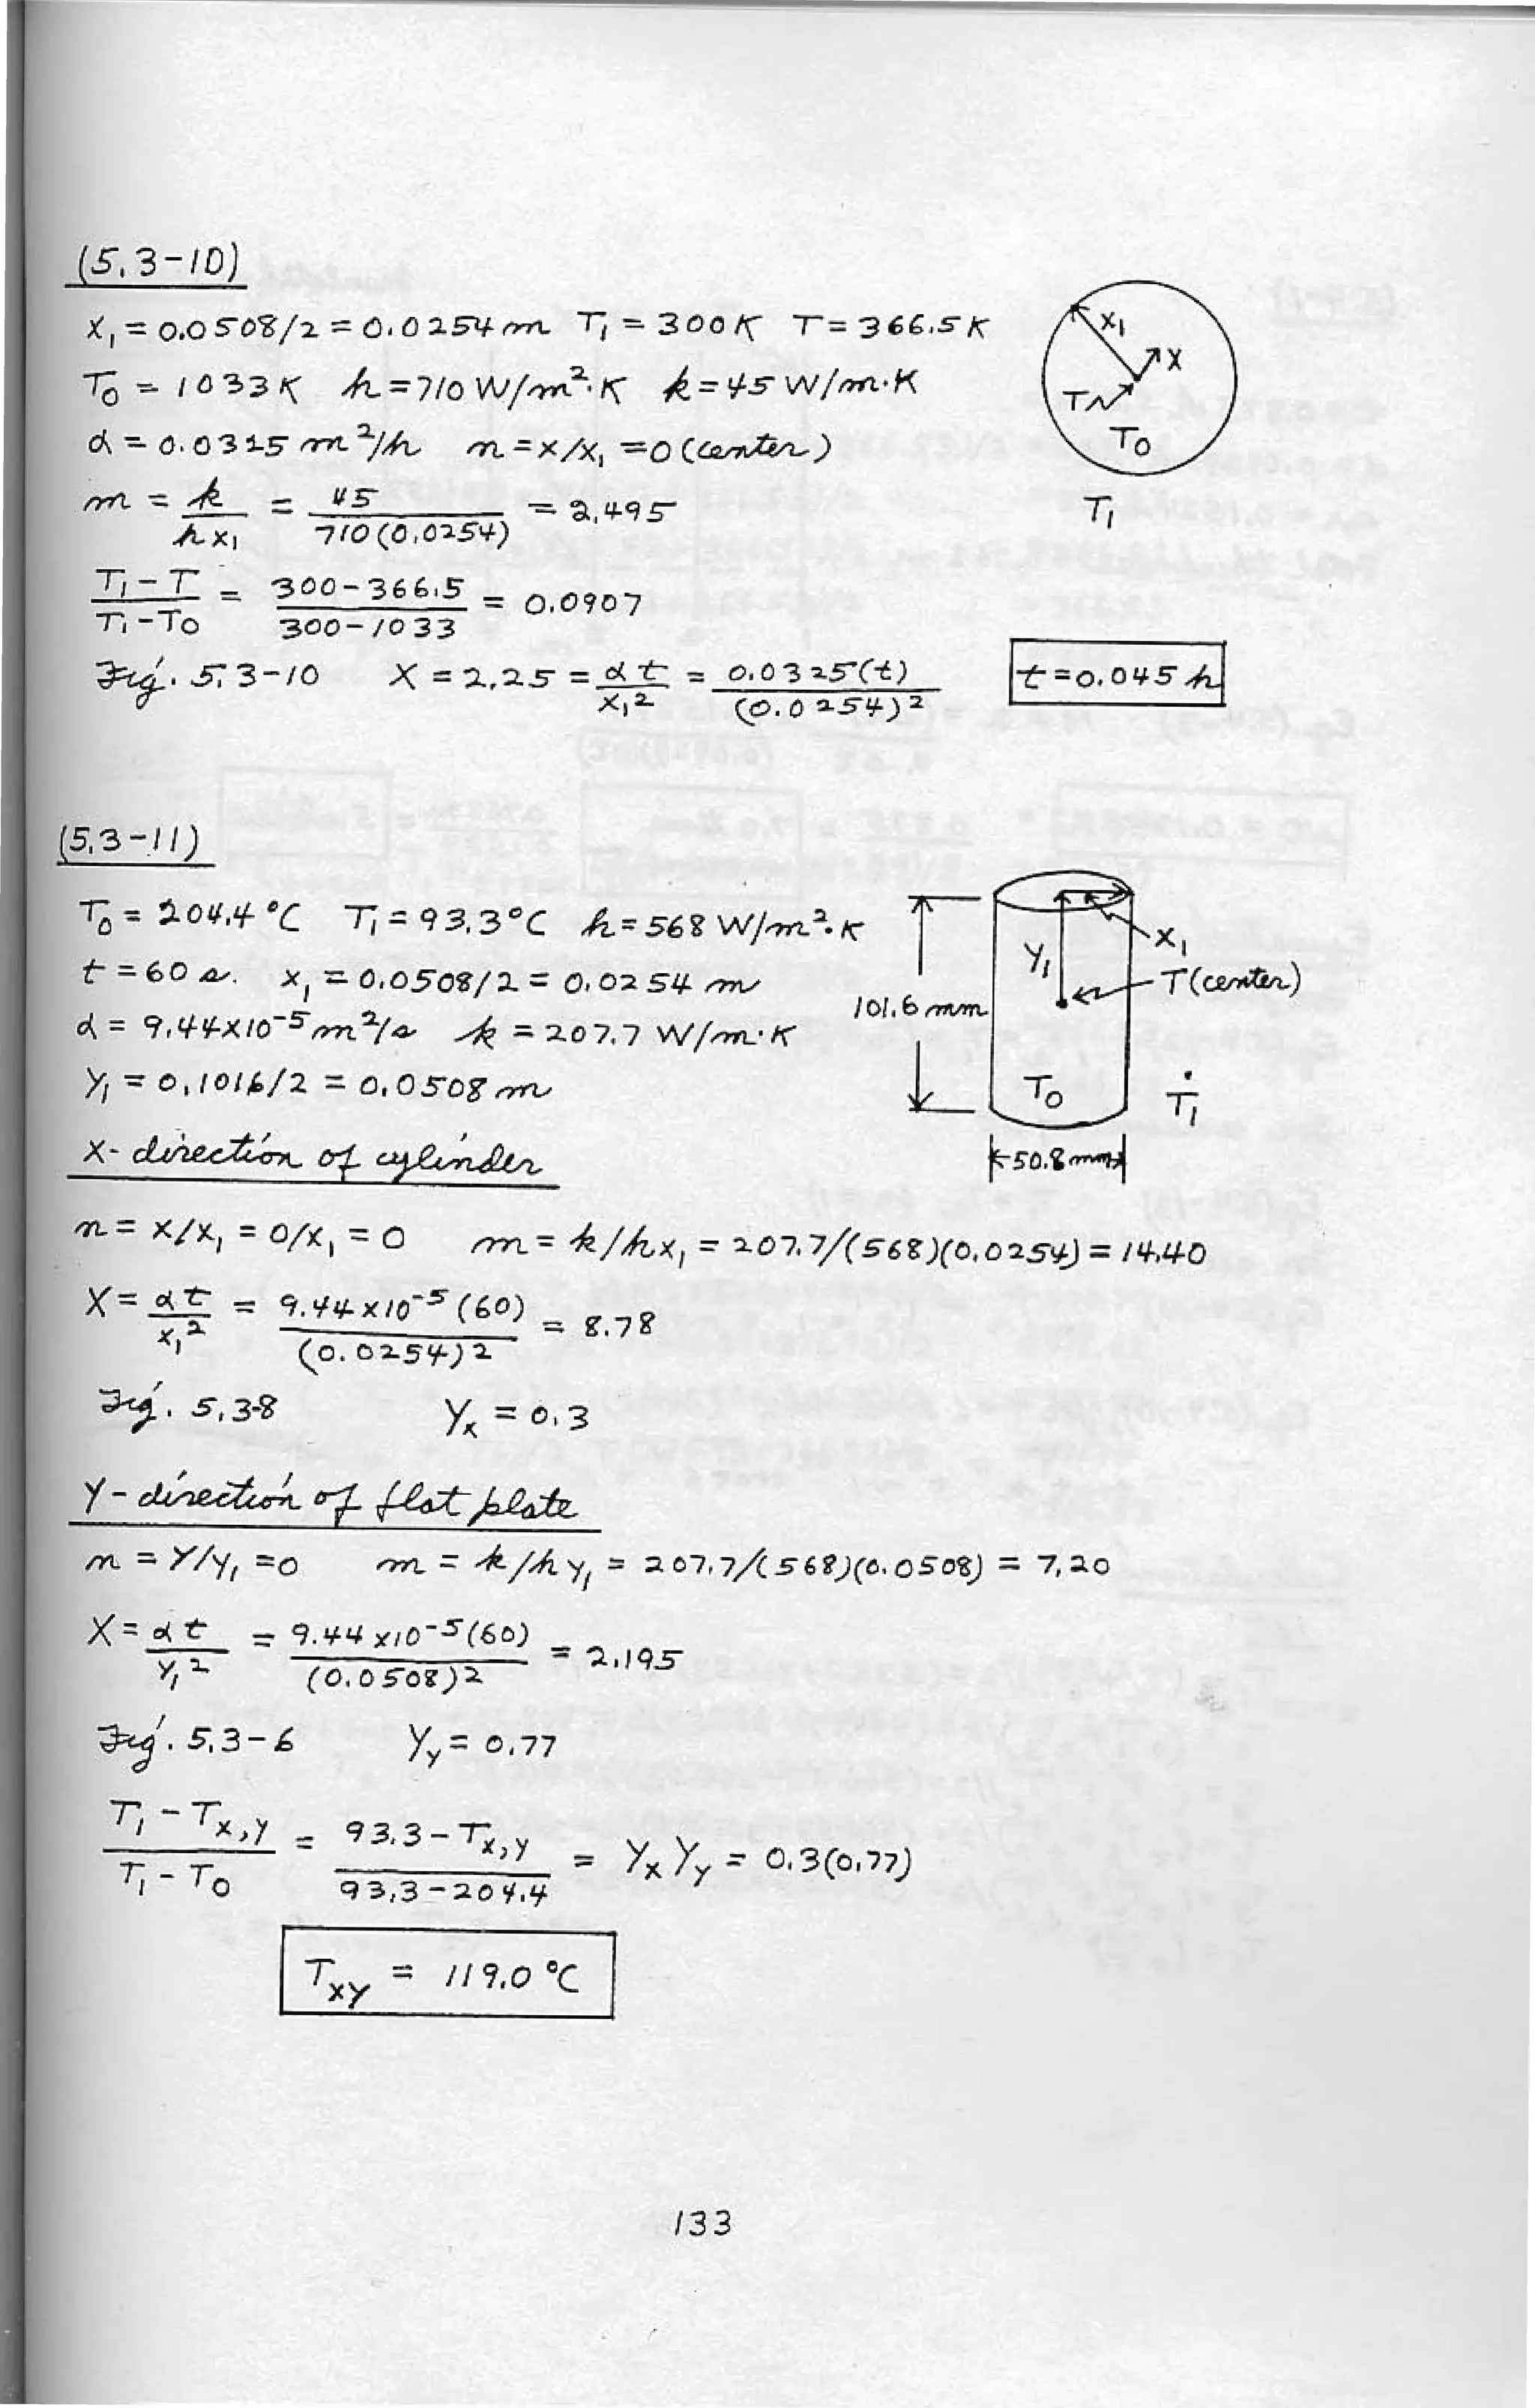 (5.3-10)
x₁ = 0.0508/2 = 0.0254 m T₁ = 300 K T = 366.5 K
T₀ = 1033 K h = 710 W/m²·K k = 45 W/m·K
α = 0.0325 m²/h n = x/x₁ = 0 (center)
m = k/hx₁ = 45/710(0.0254) = 2.495
T₁-T/T₁-T₀ = 300-366.5/300-1033 = 0.0907
Fig. 5.3-10 X = 2.25 = αt/x₁² = 0.0325(t)/(0.0254)² t = 0.045 h
x₁
x
T
T₀
T₁
(5.3-11)
T₀ = 204.4 °C T₁ = 93.3°C h = 568 W/m²·K
t = 60 s. x₁ = 0.0508/2 = 0.0254 m
α = 9.44x10⁻⁵ m²/s k = 207.7 W/m·K
y₁ = 0.1016/2 = 0.0508 m
101.6 mm
y₁
x₁
T (center)
T₀
T₁
50.8 mm
x-direction of cylinder
n = x/x₁ = 0/x₁ = 0 m = k/hx₁ = 207.7/(568)(0.0254) = 14.40
X = αt/x₁² = 9.44x10⁻⁵(60)/(0.0254)² = 8.78
Fig. 5.3-8 Yₓ = 0.3
y-direction of flat plate
n = y/y₁ = 0 m = k/hy₁ = 207.7/(568)(0.0508) = 7.20
X = αt/y₁² = 9.44x10⁻⁵(60)/(0.0508)² = 2.195
Fig. 5.3-6 Y_y = 0.77
T₁-T_x,y/T₁-T₀ = 93.3-T_x,y/93.3-204.4 = YₓY_y = 0.3(0.77)
T_xy = 119.0 °C
133